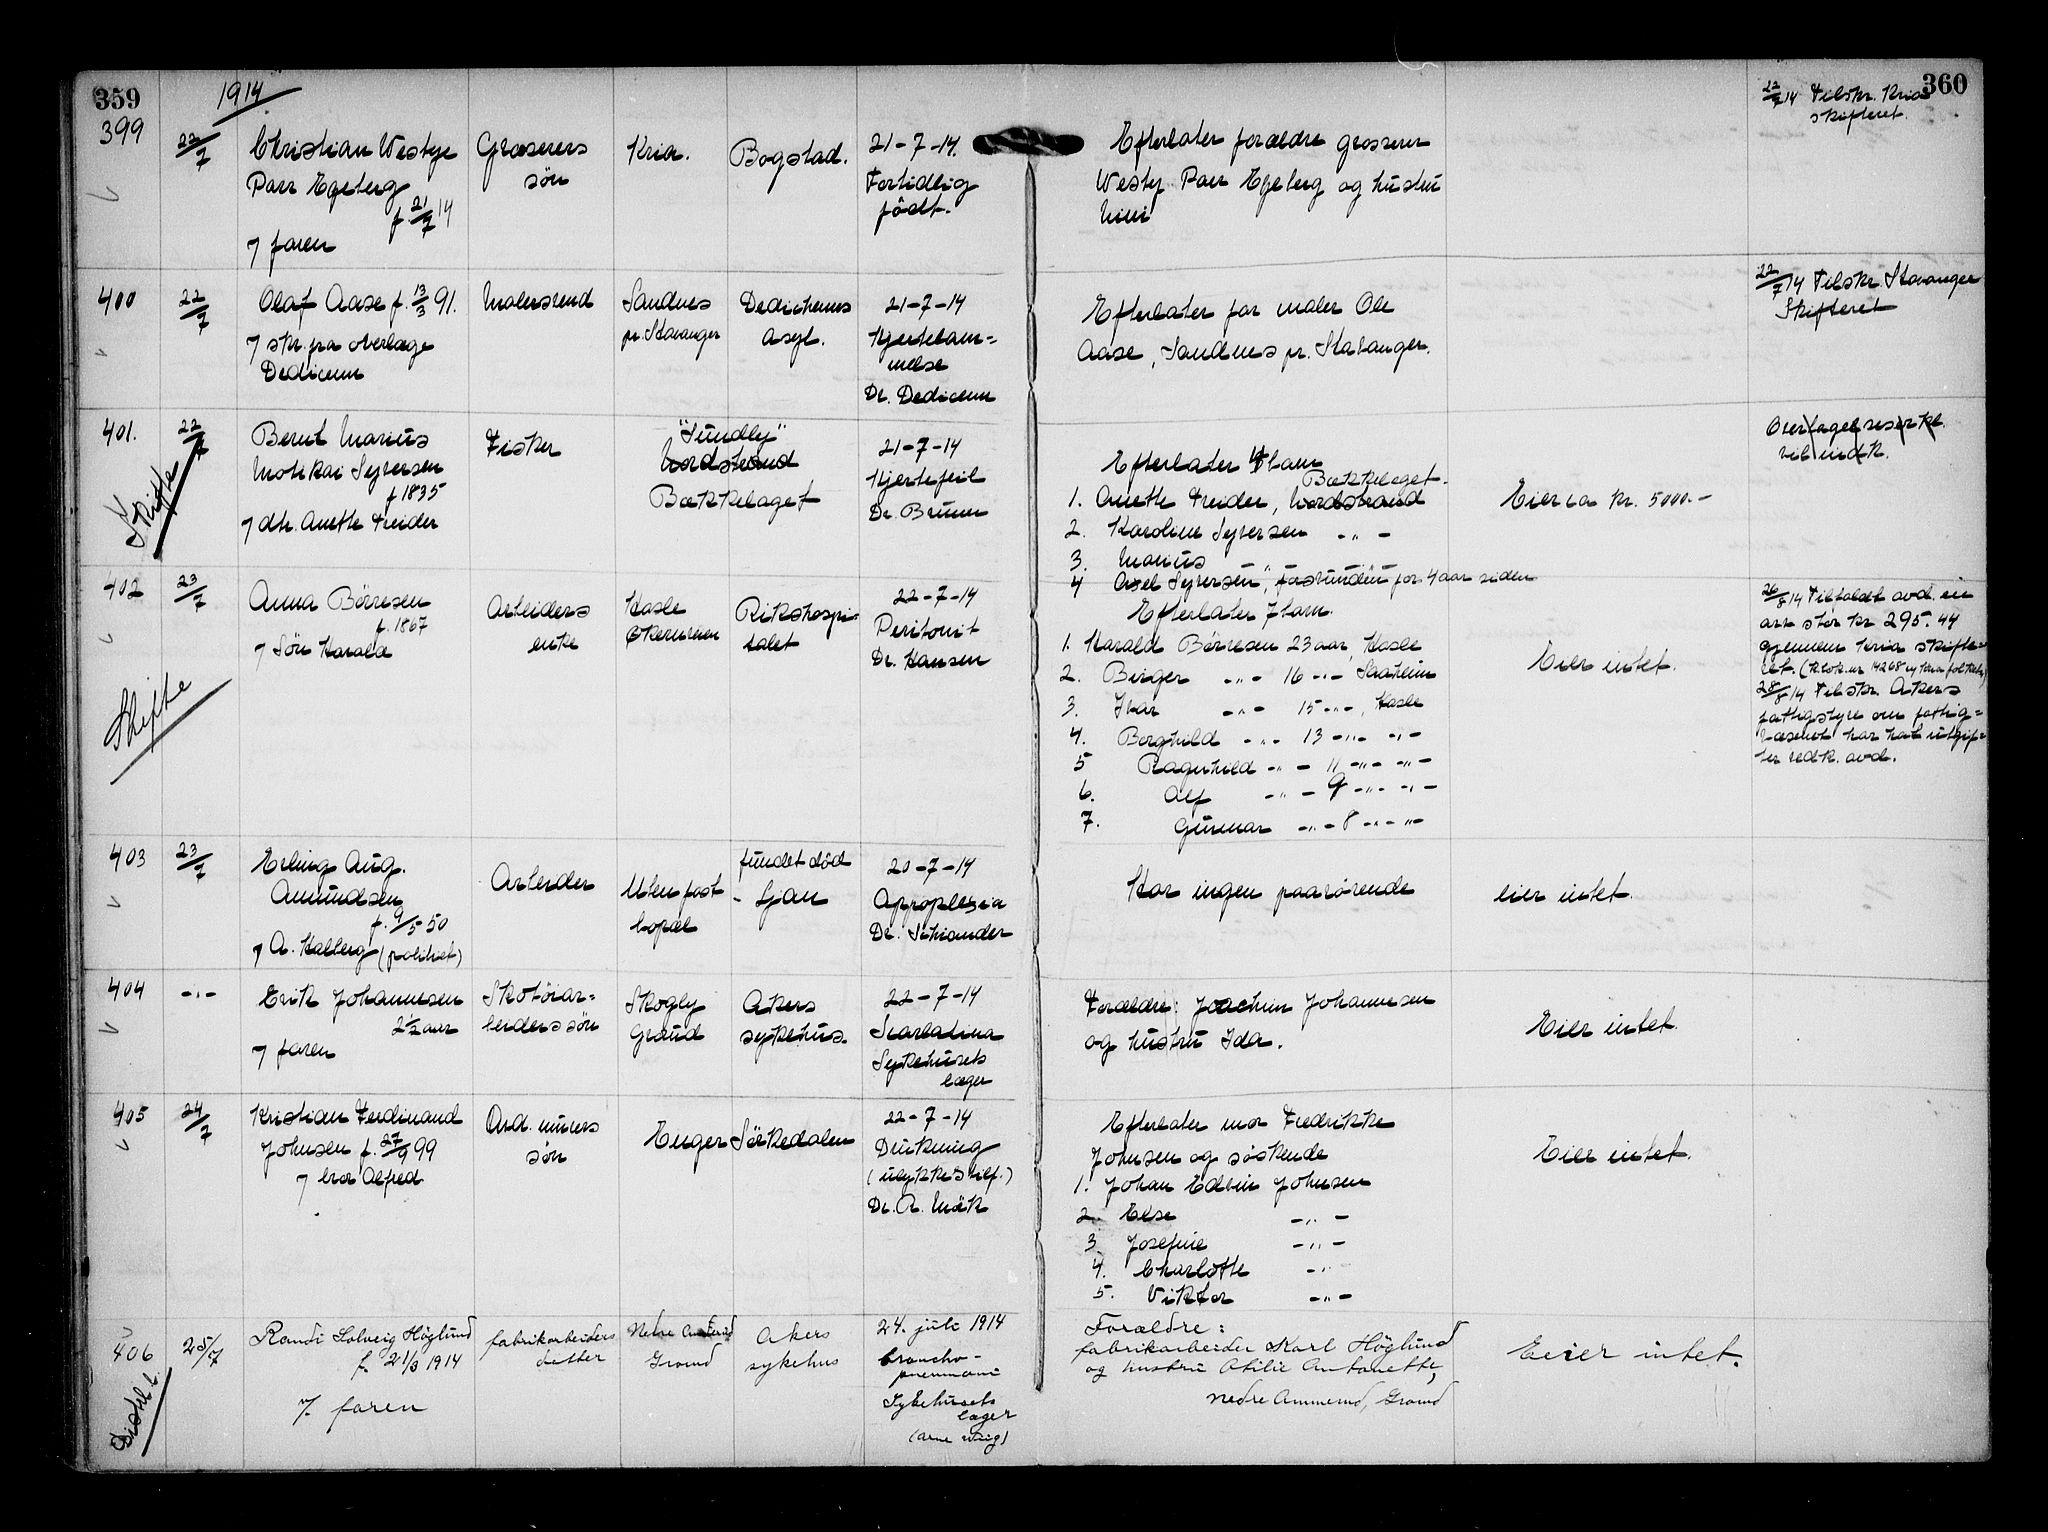 359
1914
360
399
22/7
Christian Westye
Parr Egeberg
f. 21/7 14
7 faren
Grosserers
sön
Kria.
Bogstad.
21-7-14.
Fortidlig
født.
Efterlater forældre grosserer
Westy Parr Egeberg og hustru
22/7 14 Tilskr. Kria
skifteret.
400
22/7
Olaf Aase f. 13/3 91.
7 skr. fra overlæge
Dedichen
Malersvend
Sandnes
pr. Stavanger
Dedichens
asyl.
21-7-14
Hjertelam=
melse
Dr. Dedichen
Efterlater far maler Ole
Aase, Sandnes pr. Stavanger.
22/7 14 Tilskr. Stavanger
Skifteret
401.
22/7
Skifte
Bernt Marius
Motikai Syversen
f 1835
7 dtr. Anette Freider
Fisker
"Sundly"
Nordstrand
Bækkelaget
21-7-14
Hjertefeil
Dr. Bruun
Efterlater 4 barn
Bækkelaget.
1. Anette Freider, Nordstrand
2. Karoline Syversen -"-
3. Marius -"-
4 Axel Syversen, forsvunden for 4 aar siden
Eier ca kr. 5000.-
til indk.
402
23/7
Skifte
Anna Börresen
f. 1867
7 Sön Harald
Arbeiders
enke
Hasle
Ö. Kerveien
Rikshospi-
talet
22-7-14
Peritonit
Dr. Hansen
Efterlater 7 barn.
1. Harald Börresen 23 aar, Hasle
2. Birger -"- 16 -"- Saaheim
3. Ivar -"- 15 -"-, Hasle
4. Borghild -"- 13 -"- -"-
5 Ragnhild -"- 11 -"- -"-
6. Alf -"- 9 -"- -"-
7. Gunnar -"- 8 -"- -"-
Eier intet.
26/8 14 Tilfaldt avd. en
arv stor kr 295.44
gjennem Kria skifte=
ret.
28/8 14 Tilskr. Akers
fattigstyre om fattig=
væsenet har hat utgif=
ter vedk. avd.
403
23/7
Erling Aug.
Amundsen
f. 9/5 50
7 A. Halberg (politiet)
Arbeider
Uten fast
bopæl
fundet död
- Ljan
20-7-14
Apoplexia
Dr. Schiander
Har ingen paarörende
eier intet.
404
-"-
Erik Johannesen
2½ aar
7 faren
Skotöiar=
beiders sön
Skogly
Grorud
Akers
sykehus.
22-7-14
Scarlatina
Sykehusets
læger
Forældre: Joachim Johannesen
og hustru Ida.
Eier intet.
405
24/7
Kristian Ferdinand
Johnsen f. 27/9 99
7 bror Alfred
Ard. miners
sön
Enger
Sörkedalen
22-7-14
Drukning
(ulykkestilf.)
Dr. A. Mörk
Efterlater mor Fredrikke
Johnsen og söskende
1. Johan Edvin Johnsen
2. Else -"-
3. Josefine -"-
4. Charlotte -"-
5. Viktor -"-
Eier intet.
406
25/7
Randi Solveig Höglund
f. 21/3 1914
7. faren
fabrikarbeiders
datter
Nedre Ammerud
Grorud
Akers
sykehus
24. juli 1914
broncho-
pneumoni
Sykehusets
læger
(Arne Wiig)
Forældre:
fabrikarbeider Karl Höglund
og hustru Otilie Antonette,
Nedre Ammerud, Grorud
Eier intet.